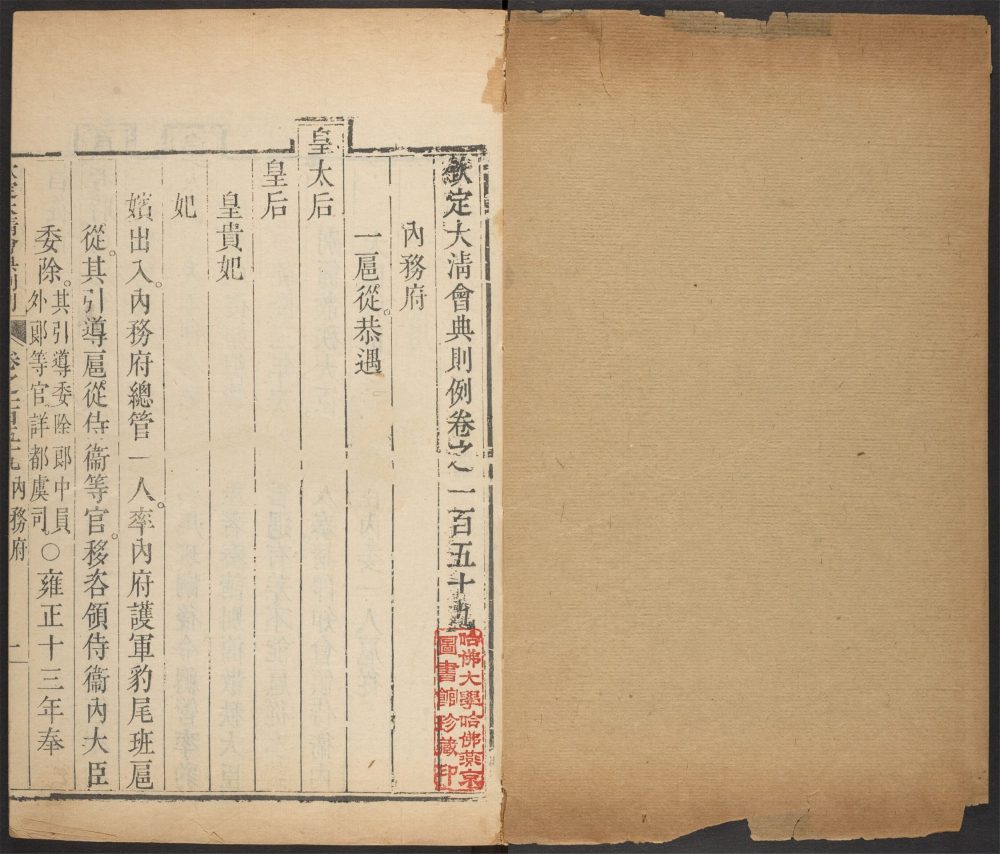 欽定大清會典則例卷之一百五十九
哈佛大學哈佛燕京
圖書館珍藏印
內務府
一扈從。恭遇
皇太后
皇后
皇貴妃
妃
嬪出入。內務府總管一人。率內府護軍豹尾班扈
從。其引導扈從侍衞等官。移咨領侍衞內大臣
委除。其引導委除郎中員
外郎等官詳都虞司。○雍正十三年奉
欽定大清會典則例 卷之一百五十九 內務府 一